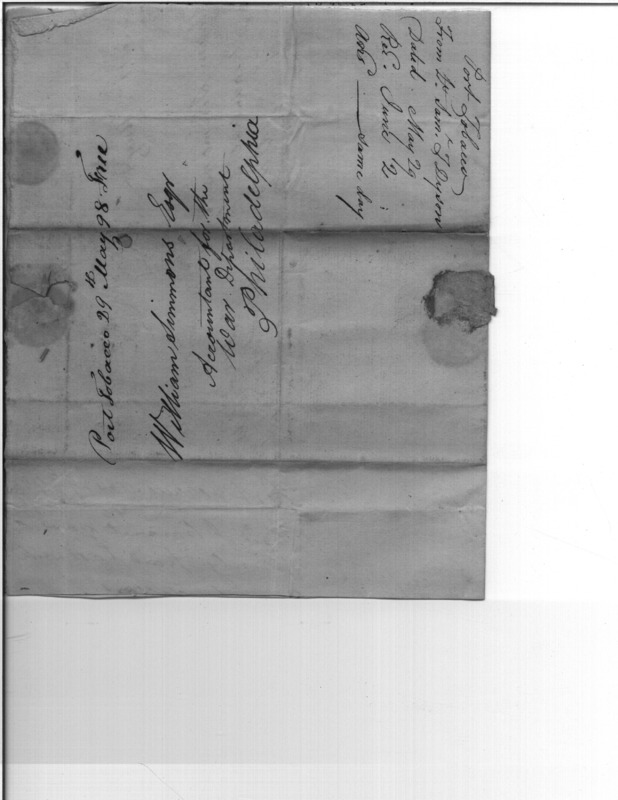 Port Tobacco 29th May 98 Free
William Simmons Esqr
Accountant for the
War Department
Philadelphia
Port Tobacco
From Dr. Saml. J Dyson
Dated. May 29
Recd. June 12
same day